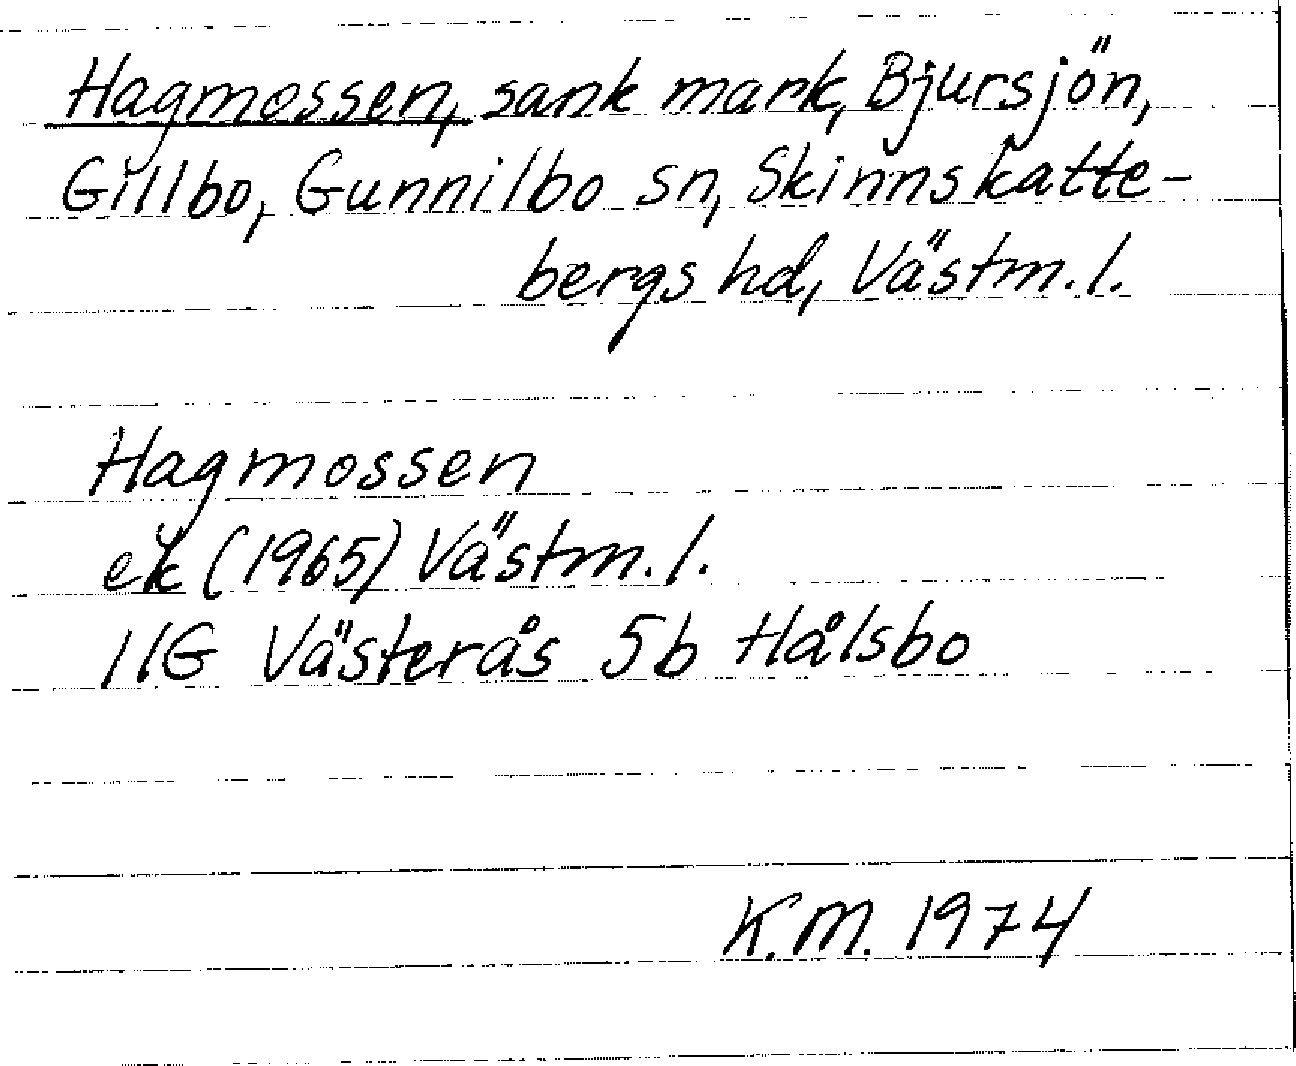 Hagmossen, sank mark, Bjursjön,
Gillbo, Gunnilbo sn, Skinnskatte-
bergs hd, Västm.l.
Hagmossen
ek (1965) Västm.l.
11G Västerås 5b Hålsbo
K.M. 1974